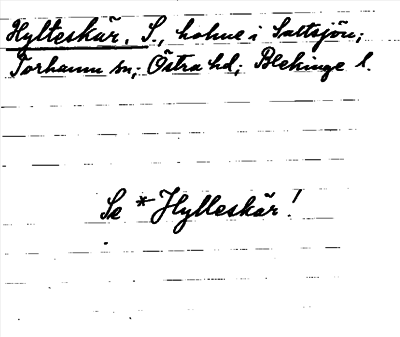 Hylteskär. S., holme i Saltsjön;
Torhamn sn; Östra hd; Blekinge l.
Se *Hylleskär!